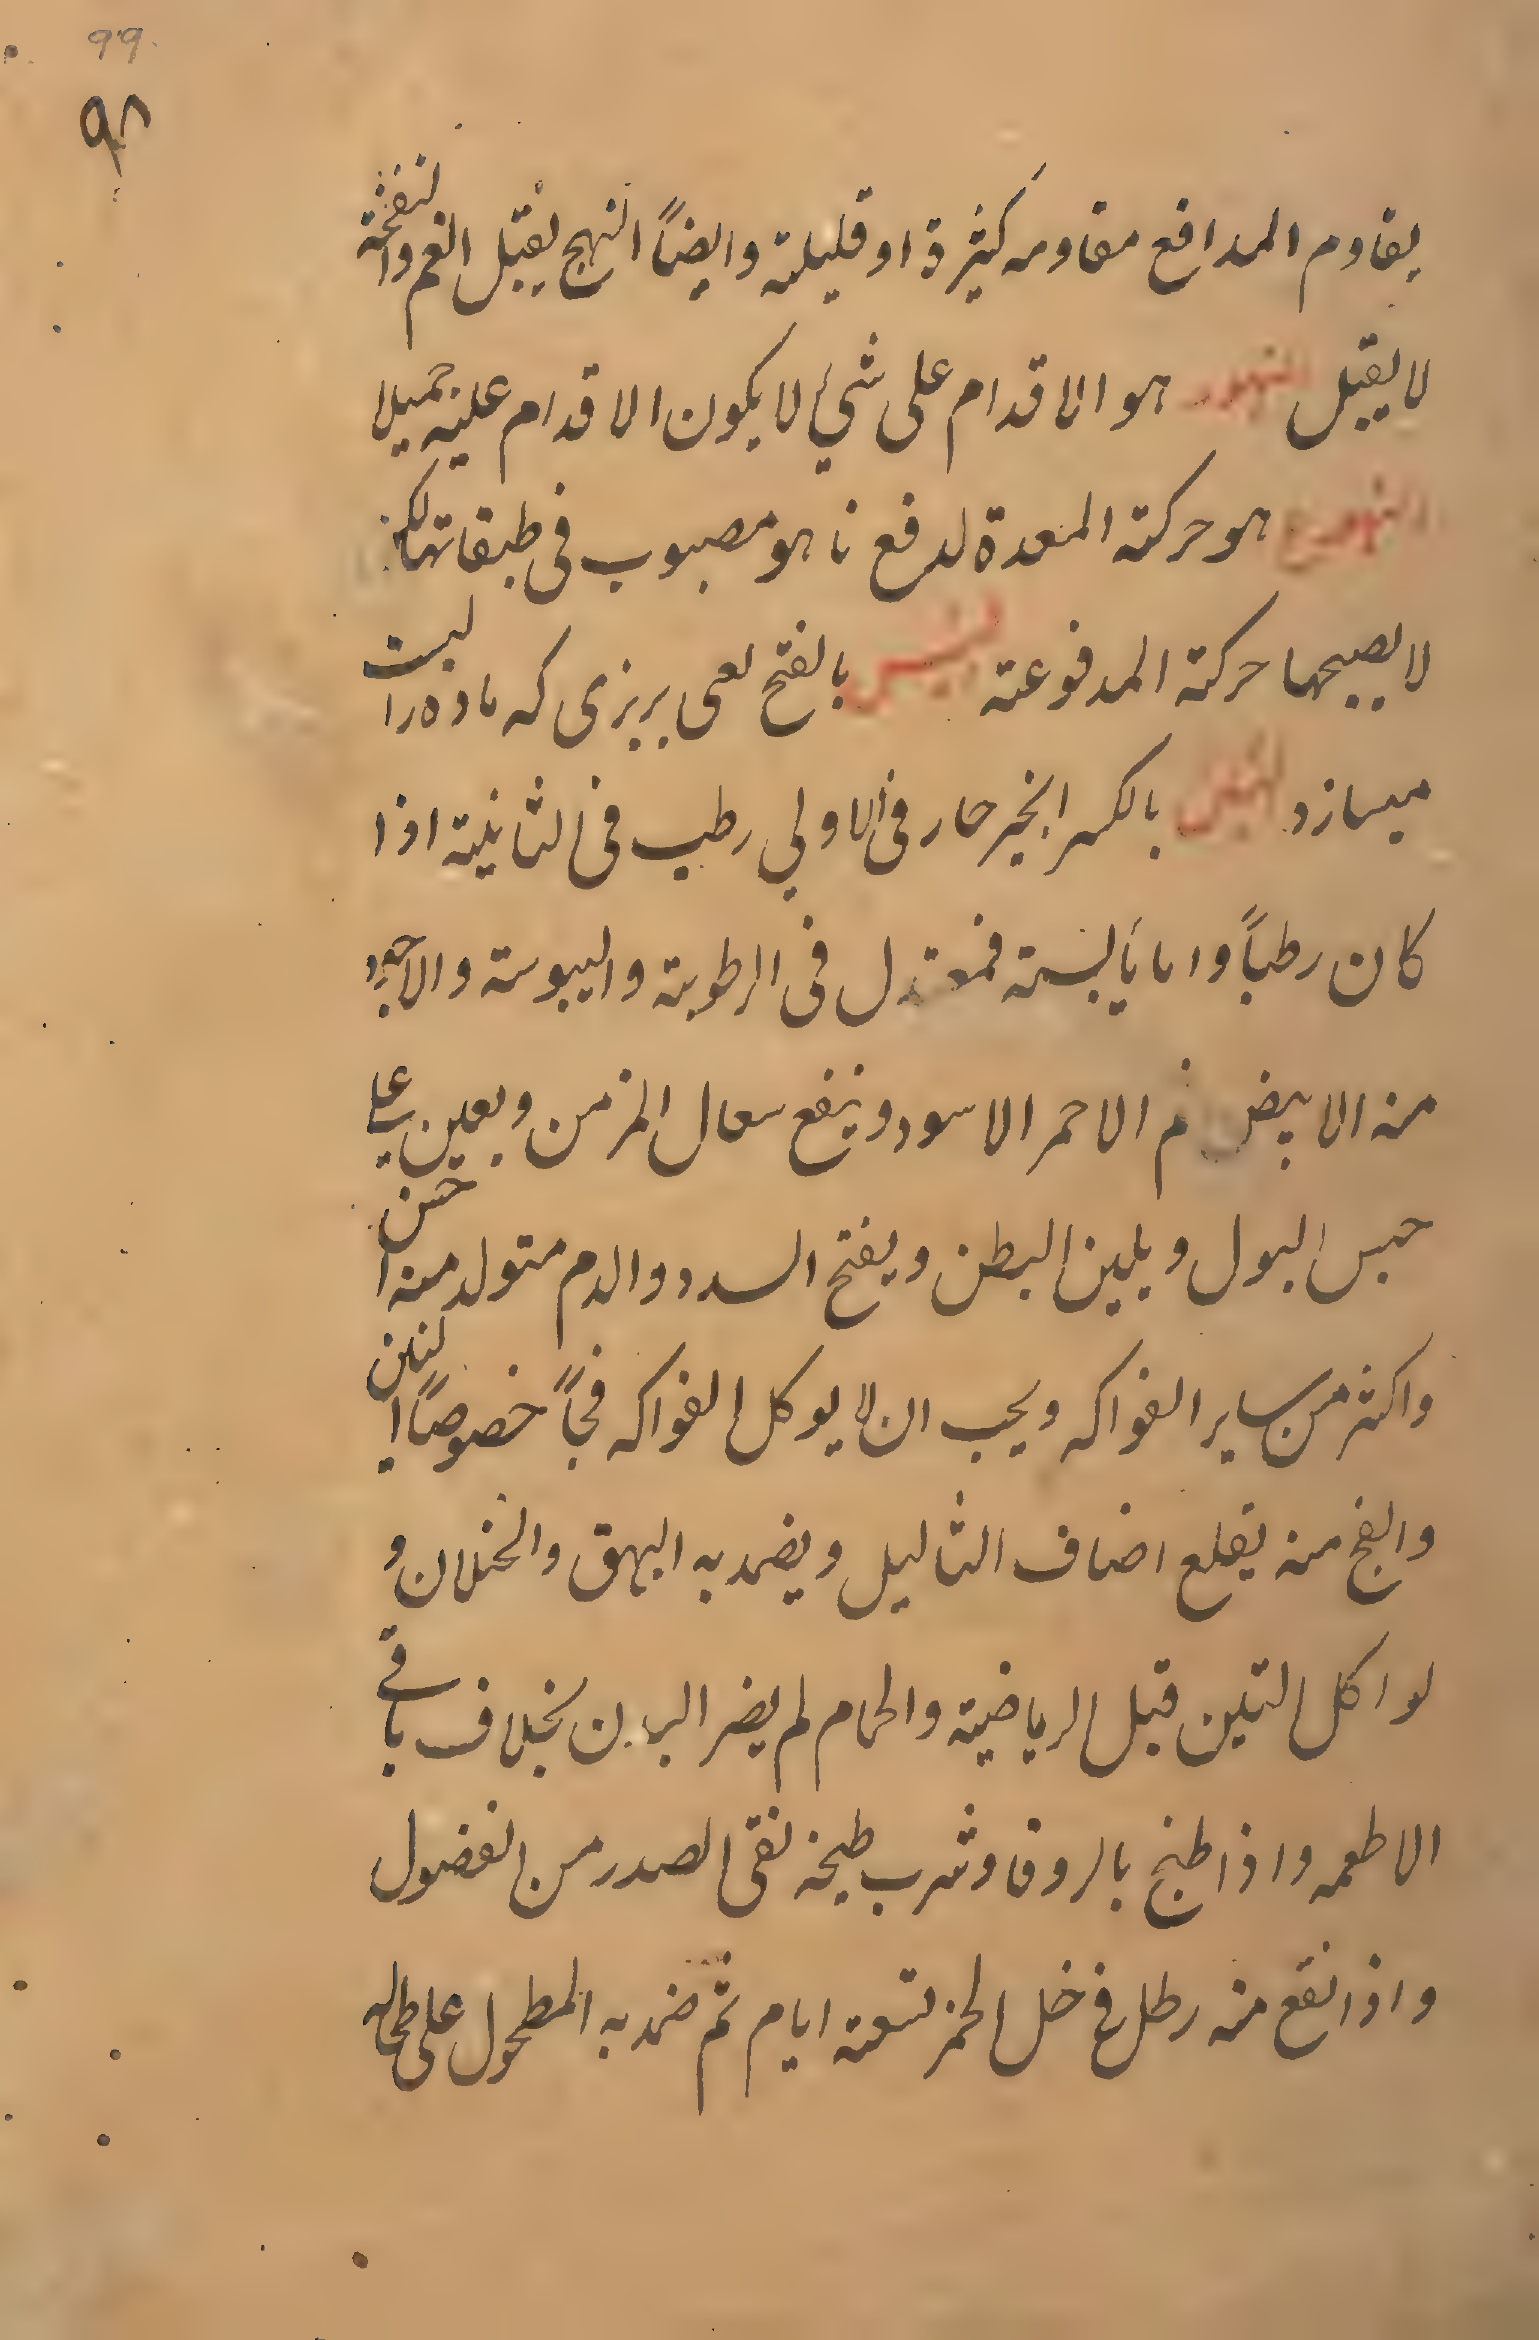 99
٩٨
يقاوم المدافع مقاومه كثيرة او قليلة وايضاً التهيج يقبل الغم والنفخة
لا يقبل التهور هو الاقدام على شئ لا يكون الاقدام عليه جميلا
التهوع هو حركة المعدة لدفع ما هو مصبوب فى طبقاتها لكن
لا يصيحها حركة المدفوعة بالفتح بريزى كه ماده را لبت
ميسازد التين بالكسر انجير حار فى الاولي رطب فى الثانية اذا
كان رطباً واما يابسة فمعتدل فى الرطوبة واليبوسة والاجود
منه الابيض ثم الاحمر الاسود وينفع سعال المزمن ويعين على
حبس البول ويلين البطن ويفتح السدد والدم متولد منه احسن
واكثر من ساير الفواكه ويجب ان لا يوكل الفواكه فجاً خصوصاً التين
والفج منه يقلع اضاف الثاليل ويضمد به البهق والخلان و
لو اكل التين قبل الرياضية والحمام لم يضر البدن بخلاف باقى
الاطعمه واذا طبخ بالزوفا وشرب طبيخه نقى الصدر من الفضول
واذا نقع منه رطل فى خل الخمر تسعة ايام ثم ضمد به المطحول على طحاله